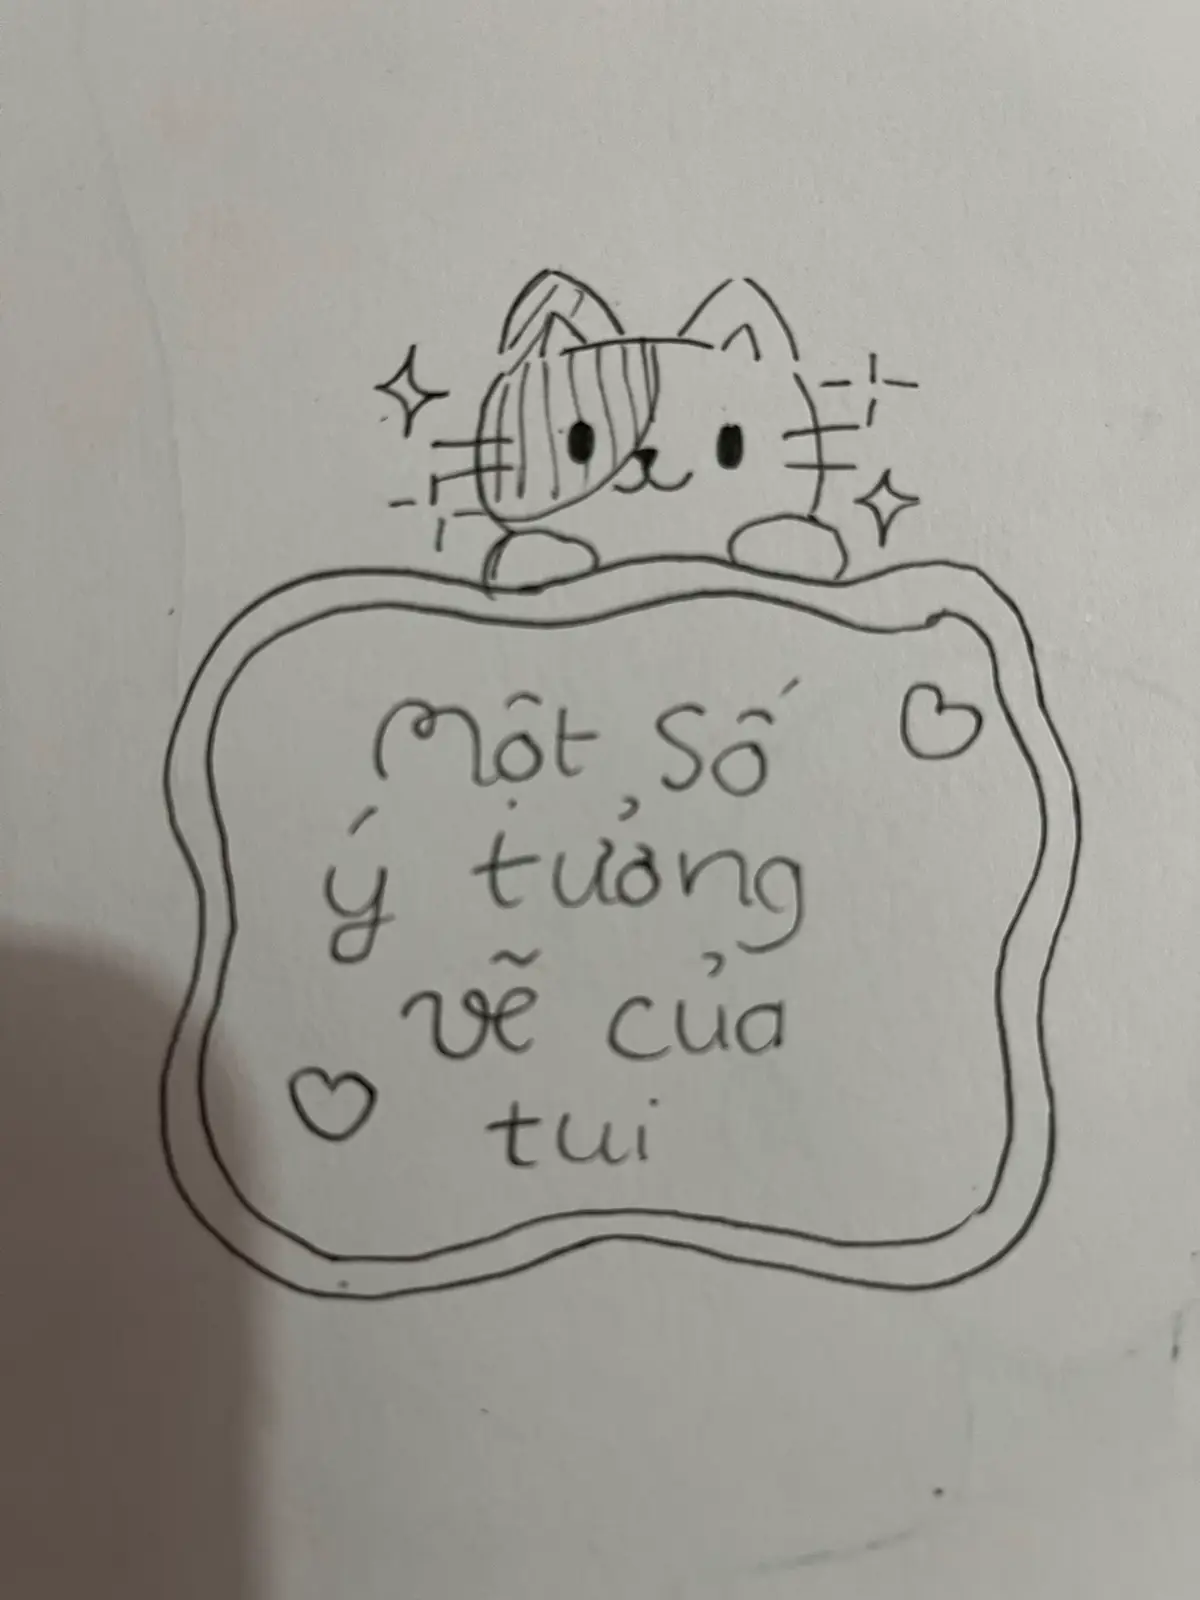 Một số
ý tưởng
vẽ của
tui